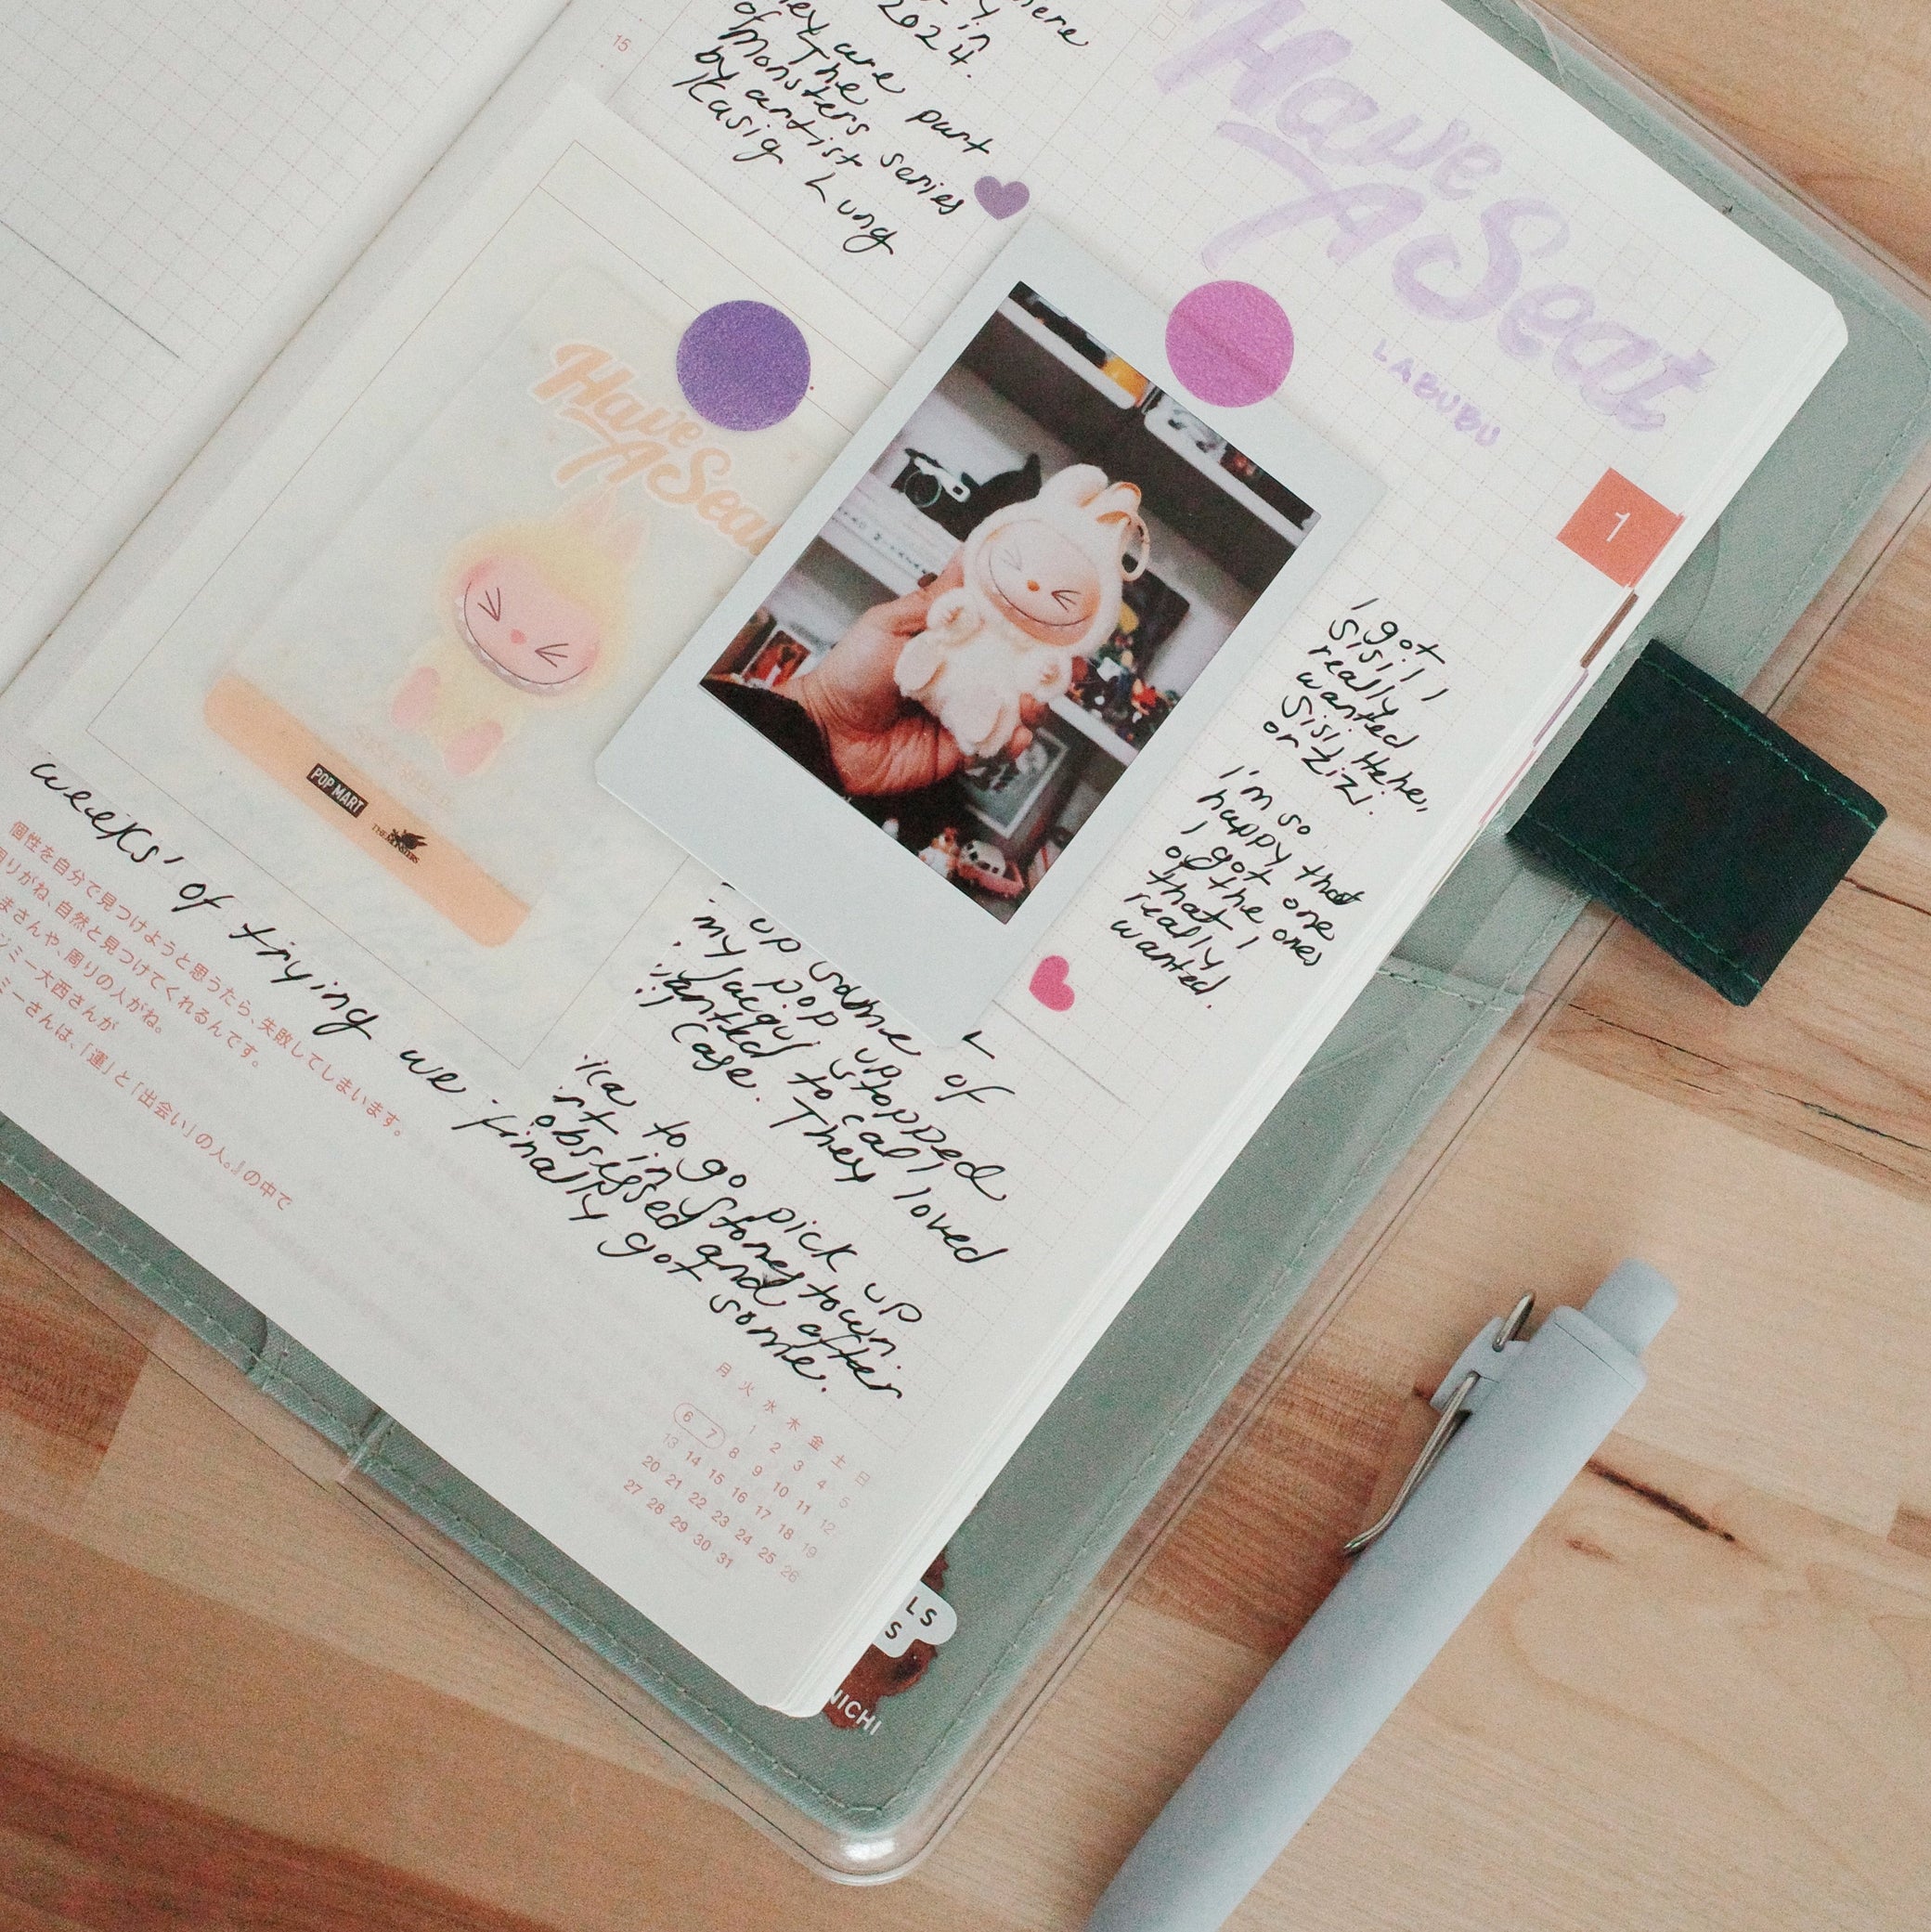 here
in
2024.
They are part
of The
Monsters series
by artist
Kasig Lung
15
Have
A Seat
LABUBU
1
Have
A Seat
POP MART
THE MONSTERS
I got
Sisi! I
really
wanted
Sisi, Hehe,
or Zizi.
I'm so
happy that
I got one
of the ones
that I
really
wanted.
up some of
my pop up stopped
to call
case. They loved
to go pick up
in Stonestown.
obsessed and after
weeks' of trying we finally got some.
個性を自分で見つけようと思うたら、失敗してしまいます。
周りがね、自然と見つけてくれるんです。
まさんや、周りの人がね。
ジミー大西さんが
ミーさんは、「運」と「出会い」の人。』の中で
月 火 水 木 金 土 日
1 2 3 4 5
6 7 8 9 10 11 12
13 14 15 16 17 18 19
20 21 22 23 24 25 26
27 28 29 30 31
LS
S
NICHI